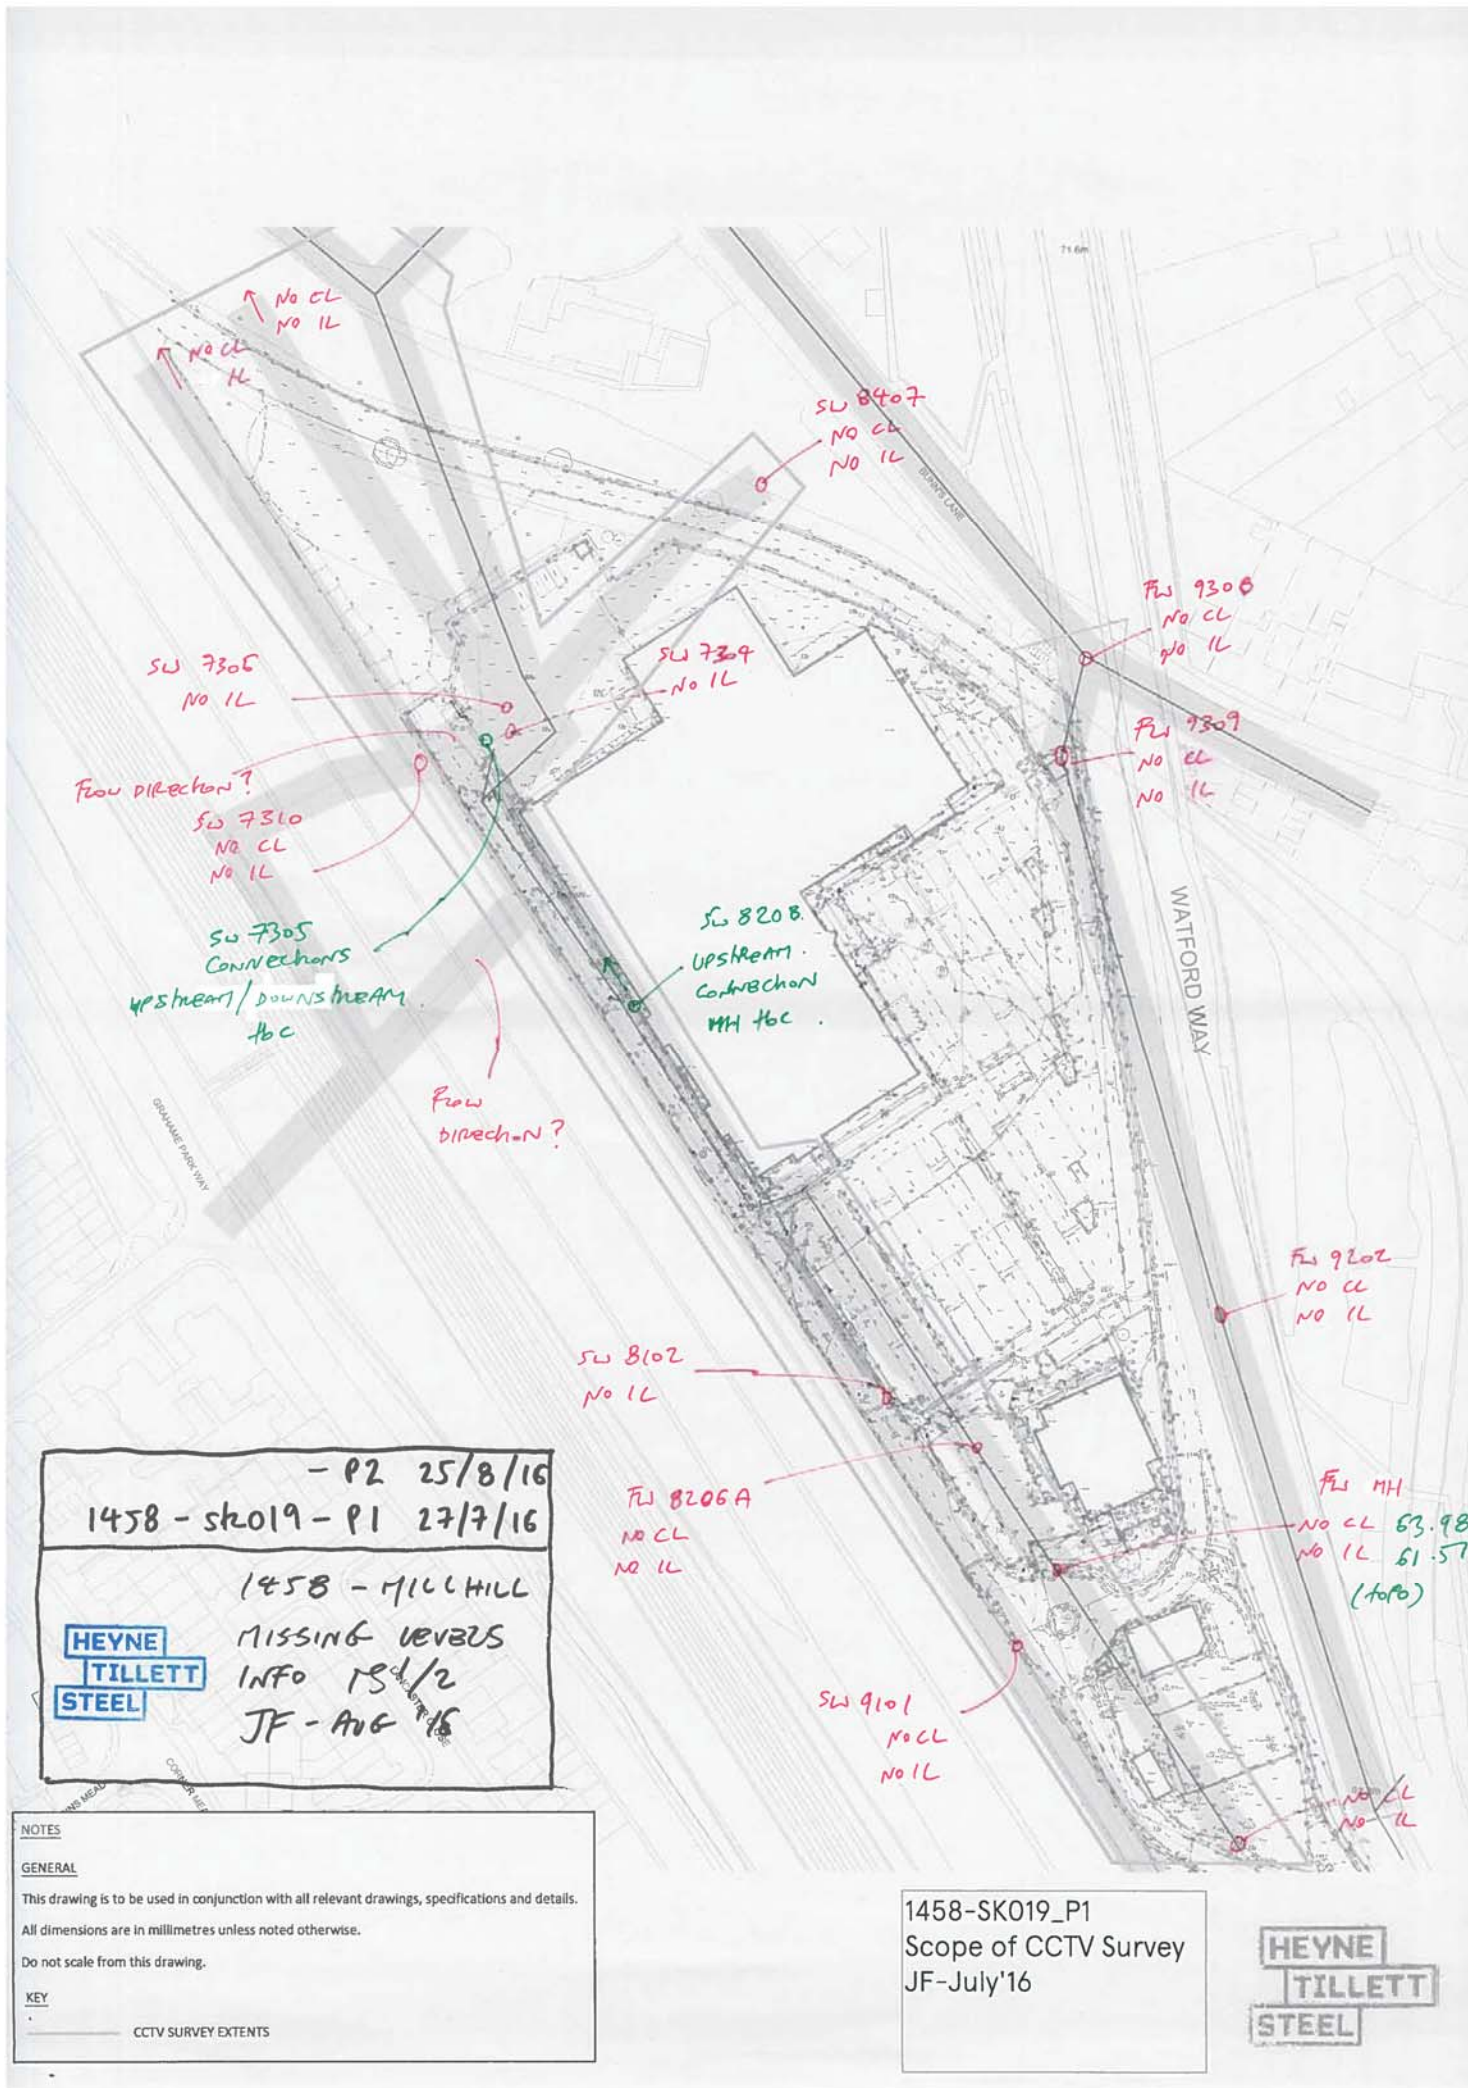 71.6m
NO CL
NO IL
NO CL
IL
SW 8407
NO CL
NO IL
BUNNS LANE
FW 9308
NO CL
NO IL
SW 7306
NO IL
SW 7304
NO IL
FW 9309
NO CL
NO IL
FLOW DIRECTION?
SW 7310
NO CL
NO IL
SW 7305
CONNECTIONS
UPSTREAM/DOWNSTREAM.
tbc
SW 8208.
UPSTREAM.
CONNECTION
MH tbc.
WATFORD WAY
FLOW
DIRECTION?
GRAHAME PARK WAY
FW 9202
NO CL
NO IL
SW 8102
NO IL
FW 8206A
NO CL
NO IL
FW MH
NO CL 63.98
NO IL 61.57
(topo)
SW 9101
NO CL
NO IL
NO CL
NO IL
- P2 25/8/16
1458 - SK019 - P1 27/7/16
1458 - MILL HILL
MISSING LEVELS
INFO
JF - AUG '16
HEYNE
TILLETT
STEEL
NOTES
GENERAL
This drawing is to be used in conjunction with all relevant drawings, specifications and details.
All dimensions are in millimetres unless noted otherwise.
Do not scale from this drawing.
KEY
CCTV SURVEY EXTENTS
1458-SK019_P1
Scope of CCTV Survey
JF-July'16
HEYNE
TILLETT
STEEL